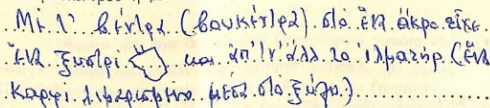 Μι τ' βέντρα (βουκέντρα) στο ένα άκρο είχε
ένα ξυστρί και απ' ν' άλλ το ιλματήρ (ένα
καρφί λιμαρισμένο μέσα στο ξύλο)